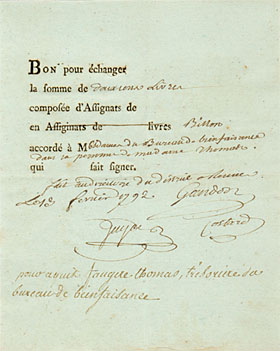 BON pour échanger
la somme de deux cens Livres
composée d'Assignats de
en Assignats de livres Billon
accordé à M Mesdames du Bureau de bienfaisance
dans la personne de madame thomas
qui fait signer.
fait au directoire du district
Le 18 février 1792
pour acquit fauquet thomas, trésoriere du
bureau de bienfaisance